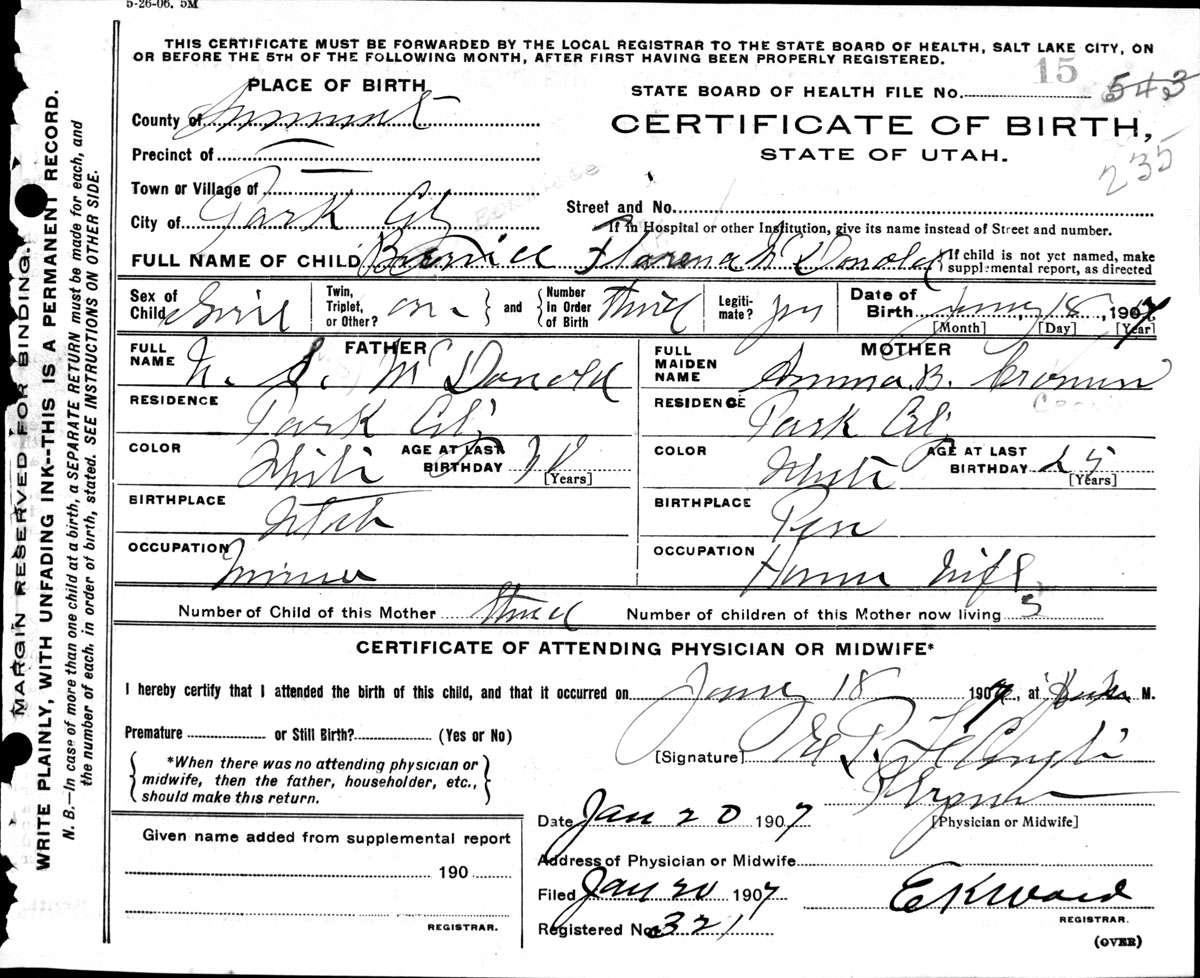 5-26-06. 5M
THIS CERTIFICATE MUST BE FORWARDED BY THE LOCAL REGISTRAR TO THE STATE BOARD OF HEALTH, SALT LAKE CITY, ON
OR BEFORE THE 5TH OF THE FOLLOWING MONTH, AFTER FIRST HAVING BEEN PROPERLY REGISTERED.
PLACE OF BIRTH
STATE BOARD OF HEALTH FILE No. 15 543
County of Summit
CERTIFICATE OF BIRTH,
235
Precinct of
STATE OF UTAH.
Town or Village of
City of Park City
Street and No.
If in Hospital or other Institution, give its name instead of Street and number.
FULL NAME OF CHILD Florena McDonold
[If child is not yet named, make supplemental report, as directed
Sex of Child Girl Twin, Triplet, or Other? one and Number in Order of Birth third Legiti-mate? yes Date of Birth Jany 18, 1907
[Month] [Day] [Year]
FATHER
MOTHER
FULL NAME McDonold
FULL MAIDEN NAME Anna B. Cronin
RESIDENCE Park City
RESIDENCE Park City
COLOR White AGE AT LAST BIRTHDAY [Years]
COLOR White AGE AT LAST BIRTHDAY 25 [Years]
BIRTHPLACE Utah
BIRTHPLACE Pen
OCCUPATION Miner
OCCUPATION House Wife
Number of Child of this Mother third Number of children of this Mother now living 3
CERTIFICATE OF ATTENDING PHYSICIAN OR MIDWIFE*
I hereby certify that I attended the birth of this child, and that it occurred on Jany 18 1907, at M.
Premature or Still Birth? (Yes or No)
[Signature]
*When there was no attending physician or
midwife, then the father, householder, etc.,
should make this return.
Date Jan 20 1907
[Physician or Midwife]
Given name added from supplemental report
Address of Physician or Midwife
190
Filed Jan 20 1907 E K Ward
REGISTRAR.
REGISTRAR.
Registered No. 321
(OVER)
MARGIN RESERVED FOR BINDING.
WRITE PLAINLY, WITH UNFADING INK--THIS IS A PERMANENT RECORD.
N. B.—In case of more than one child at a birth, a SEPARATE RETURN must be made for each, and
the number of each, in order of birth, stated. SEE INSTRUCTIONS ON OTHER SIDE.